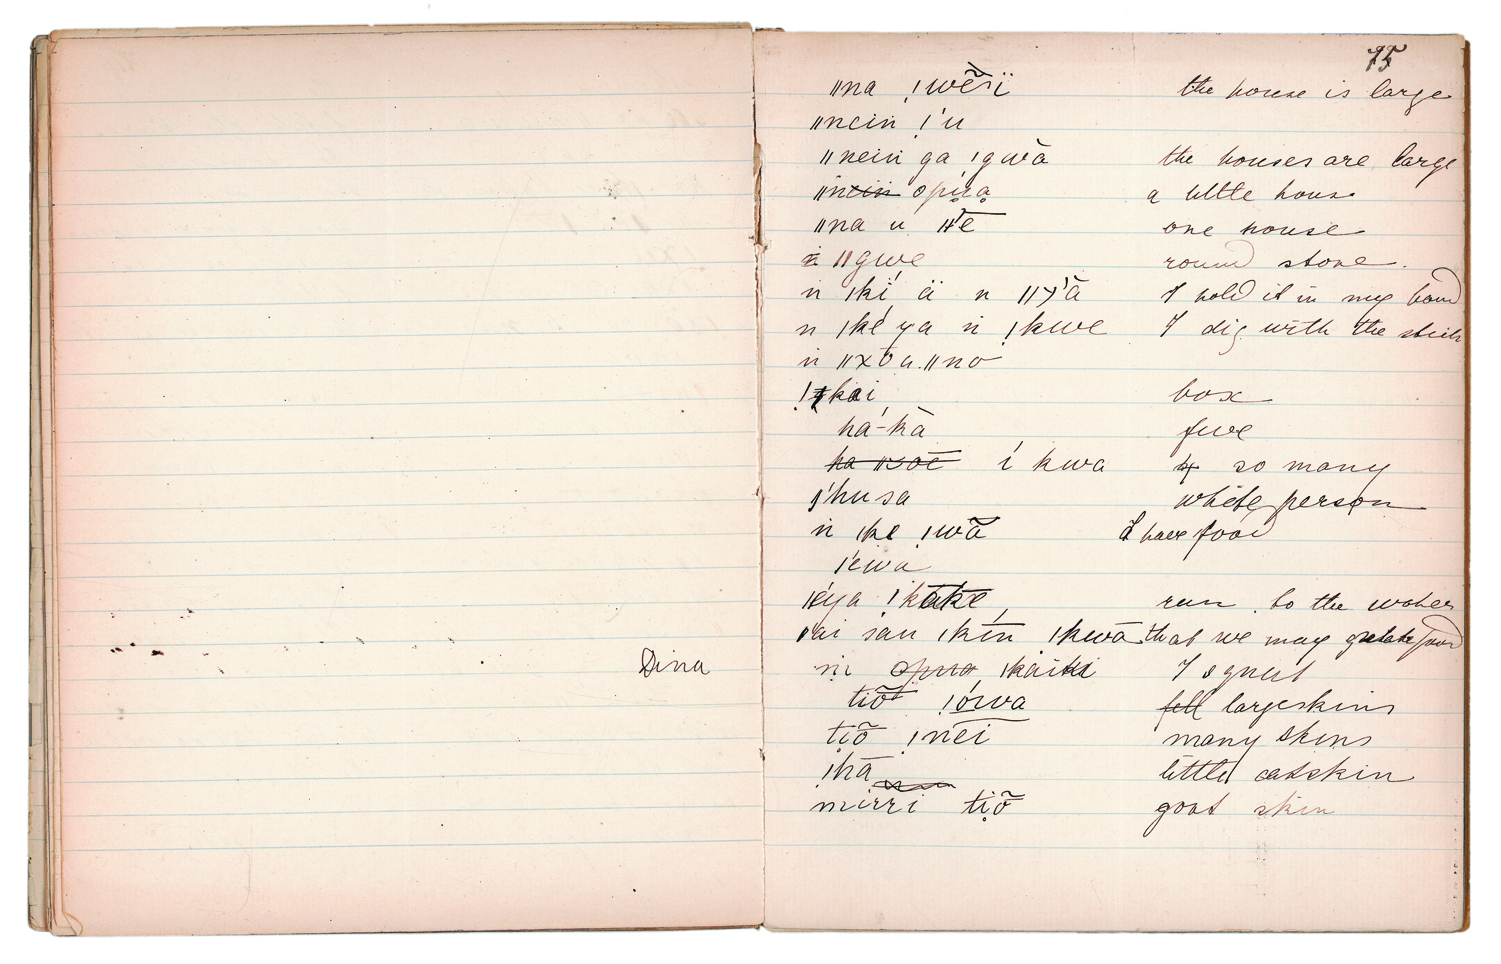 75
ǁna ǃwẽsï the house is large
ǁnein ǃ'u
ǁnein ga ǃgwā the houses are large
ǁnein opúa a little house
ǁna u one house
ǁgwe round stone.
n ǀkí ä n I hold it in my hand
n ǀké ya n ǃkwe I dig with the stick
n ǁxōa ǁno
kai box
há-kā five
í kwa so many
ǀ'husa white person
n ǀke ǃwã I have food
ǀ'ewa
ǀéya run to the water
ai san ǀkín ǀkwā that we may food
Dina
n ǀkaiki I squat
tiõ ǃówa fell large skins
tiõ ǃnei many skins
ǃhā little catskin
mirri tiõ goat skin